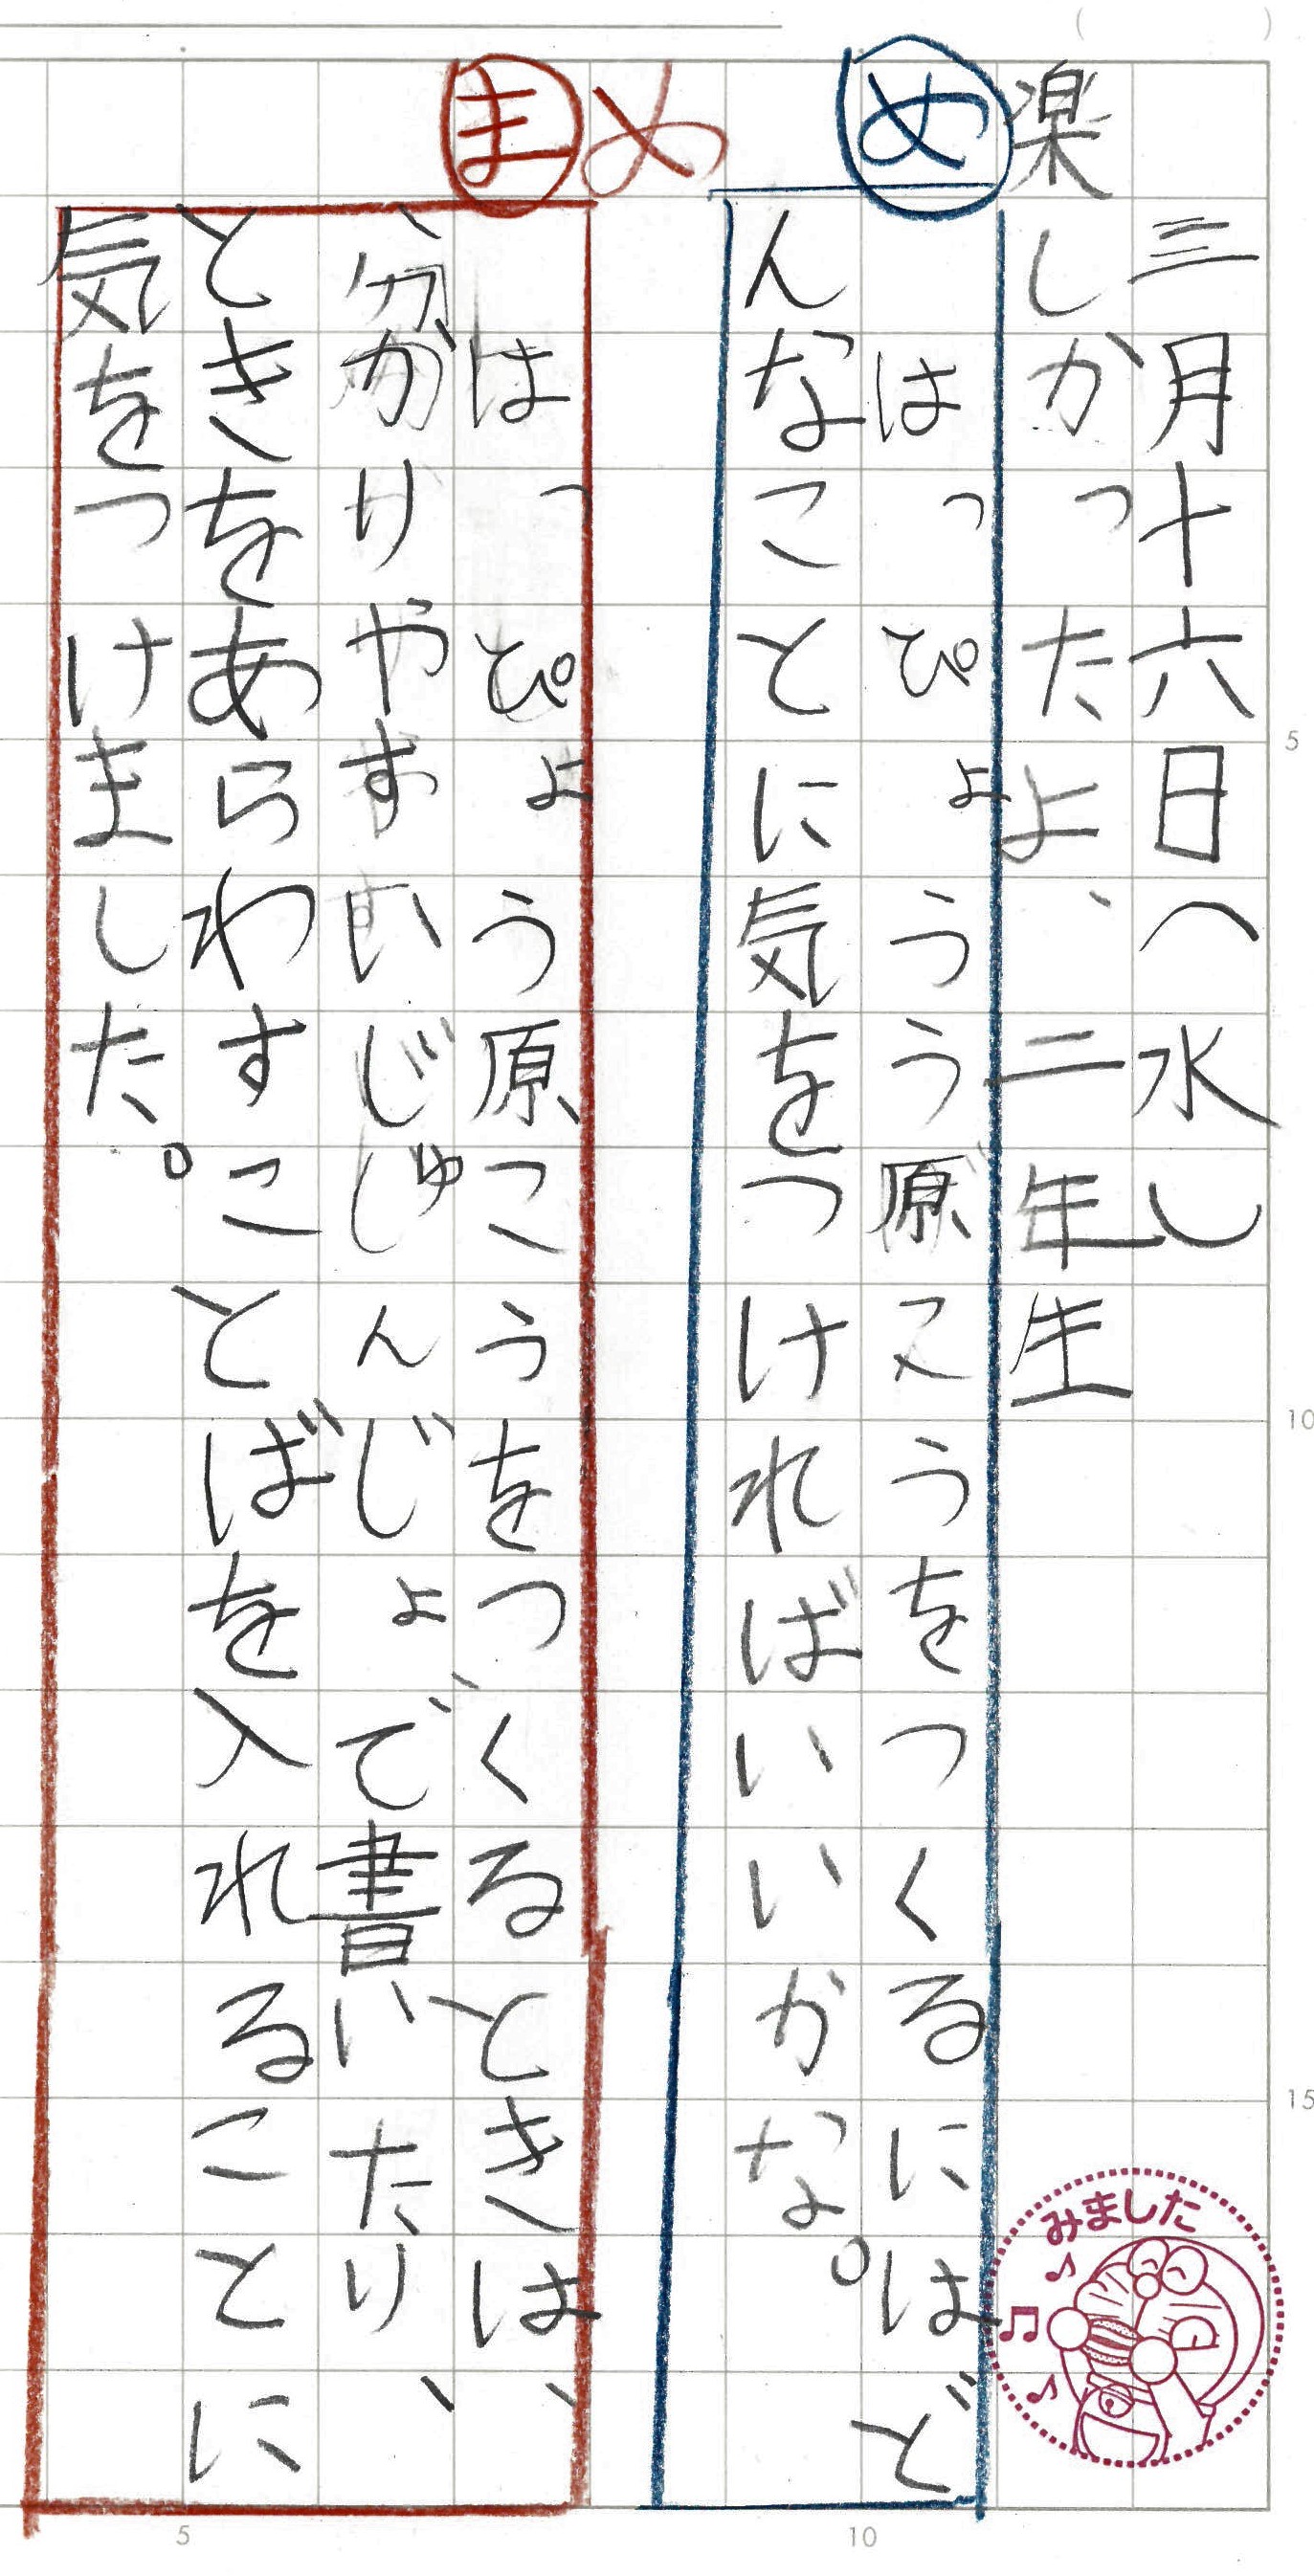 三月十六日(水)
楽しかったよ、二年生
め
はっぴょうう原こうをつくるにはど
んなことに気をつければいいかな。
め
ま
はっぴょう原こうをつくるときは、
分かりやすいじじゅんじょで書いたり、
ときをあらわすことばを入れることに
気をつけました。
みました
5
10
15
5
10